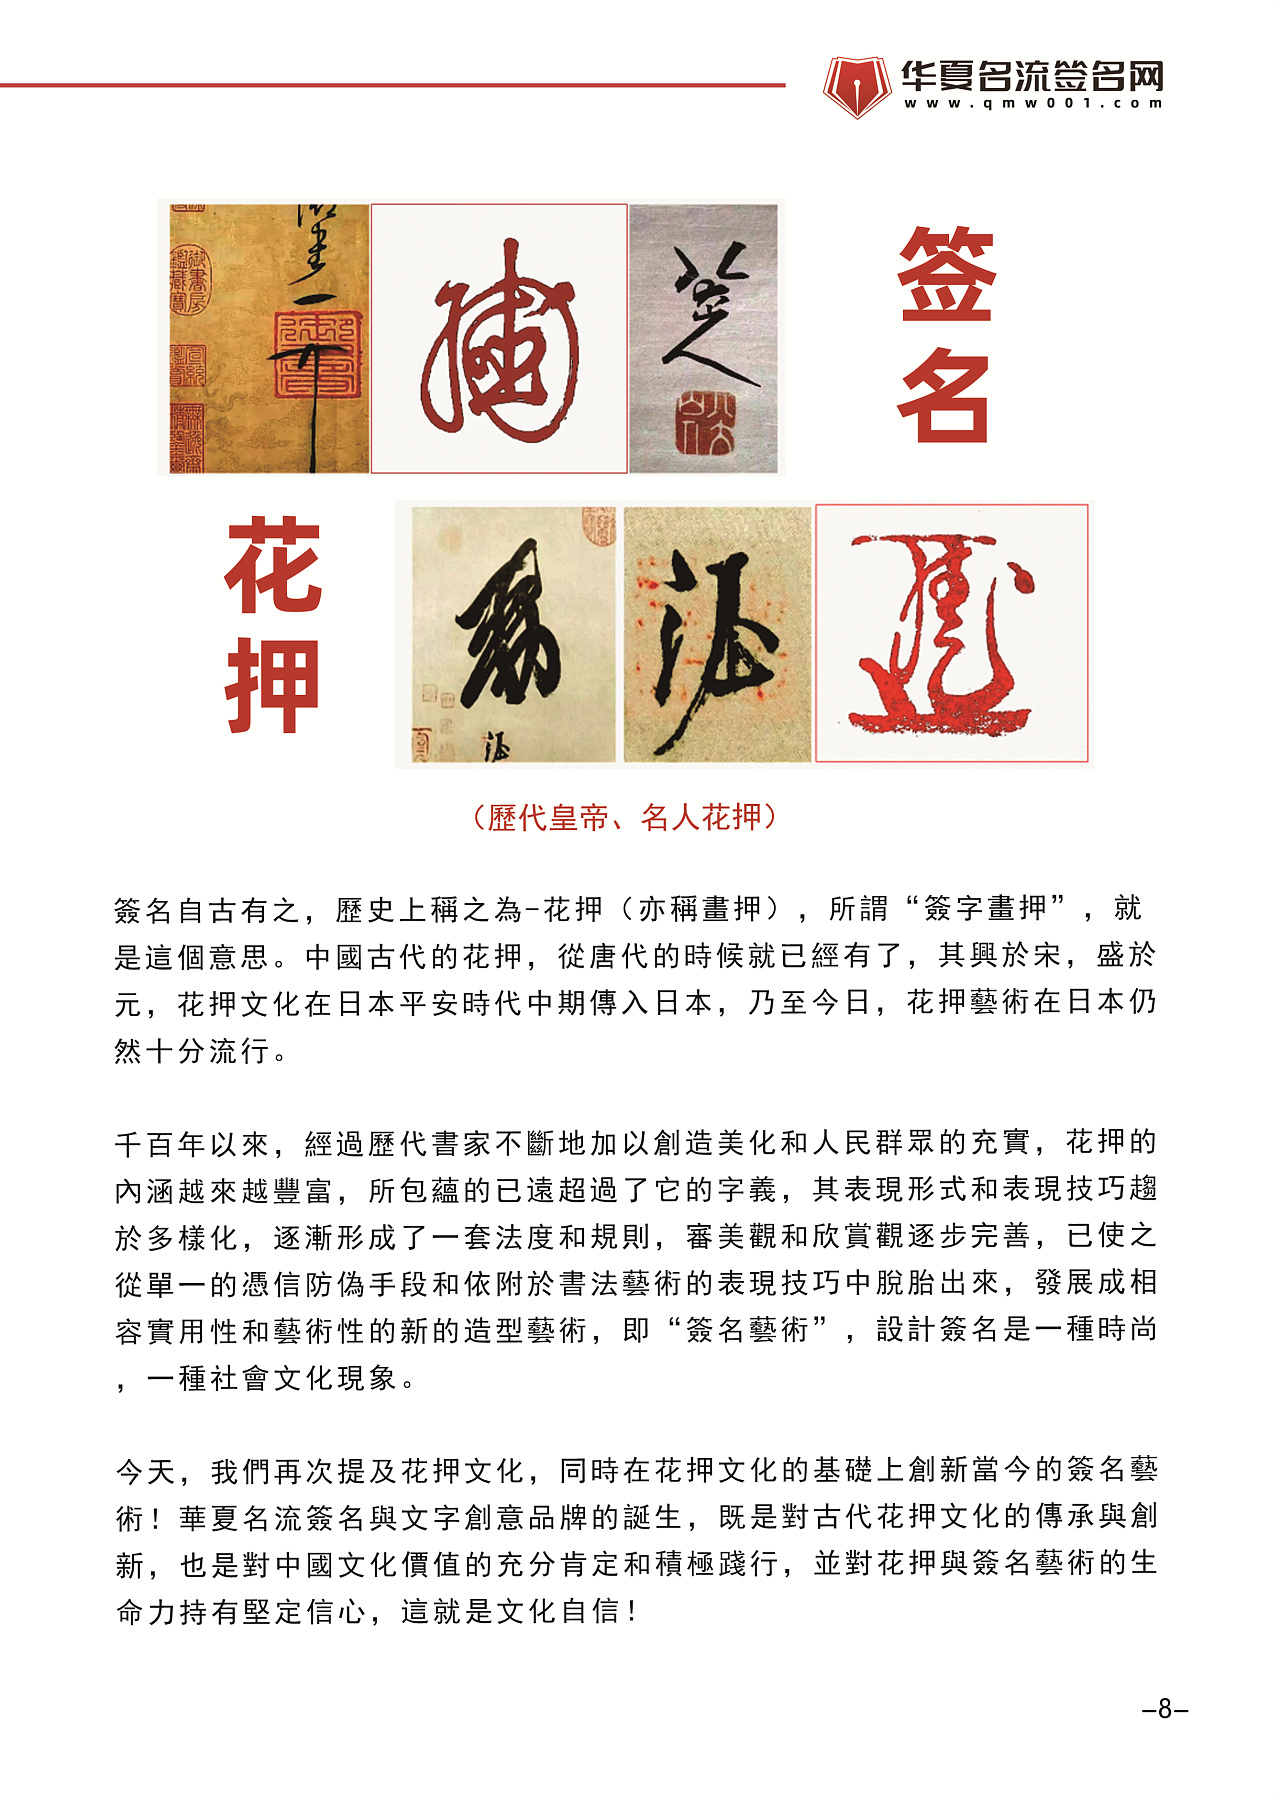 华夏名流签名网
www.qmw001.com
签
名
花
押
（歷代皇帝、名人花押）
簽名自古有之，歷史上稱之為-花押（亦稱畫押），所謂“簽字畫押”，就
是這個意思。中國古代的花押，從唐代的時候就已經有了，其興於宋，盛於
元，花押文化在日本平安時代中期傳入日本，乃至今日，花押藝術在日本仍
然十分流行。
千百年以來，經過歷代書家不斷地加以創造美化和人民群眾的充實，花押的
內涵越來越豐富，所包蘊的已遠超過了它的字義，其表現形式和表現技巧趨
於多樣化，逐漸形成了一套法度和規則，審美觀和欣賞觀逐步完善，已使之
從單一的憑信防偽手段和依附於書法藝術的表現技巧中脫胎出來，發展成相
容實用性和藝術性的新的造型藝術，即“簽名藝術”，設計簽名是一種時尚
，一種社會文化現象。
今天，我們再次提及花押文化，同時在花押文化的基礎上創新當今的簽名藝
術！華夏名流簽名與文字創意品牌的誕生，既是對古代花押文化的傳承與創
新，也是對中國文化價值的充分肯定和積極踐行，並對花押與簽名藝術的生
命力持有堅定信心，這就是文化自信！
-8-